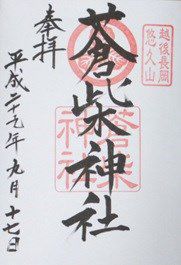 越後長岡
悠久山
奉拝
蒼柴神社
蒼柴
神社
平成二十九年九月十七日